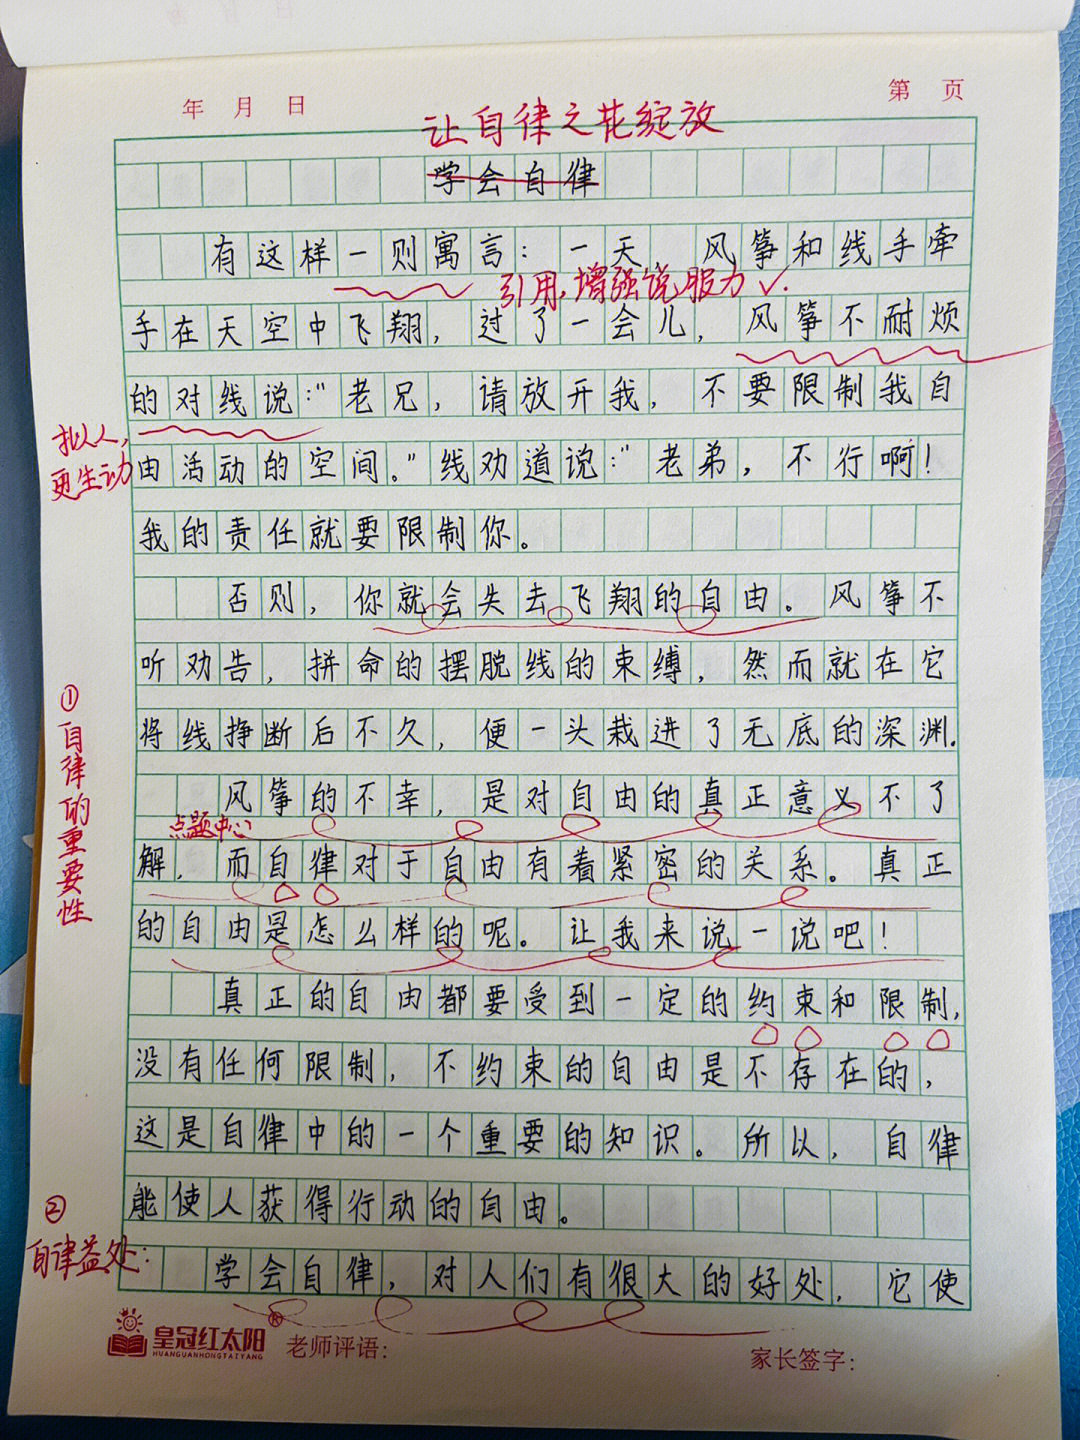 年 月 日
第 页
让自律之花绽放
学会自律
有这样一则寓言：一天，风筝和线手牵
引用，增强说服力
手在天空中飞翔，过了一会儿，风筝不耐烦
的对线说："老兄，请放开我，不要限制我自
拟人，
更生动
由活动的空间。"线劝道说："老弟，不行啊！
我的责任就要限制你。
否则，你就会失去飞翔的自由。风筝不
听劝告，拼命的摆脱线的束缚，然而就在它
①自律的重要性
将线挣断后不久，便一头栽进了无底的深渊.
风筝的不幸，是对自由的真正意义不了
点题中心
解，而自律对于自由有着紧密的关系。真正
的自由是怎么样的呢。让我来说一说吧！
真正的自由都要受到一定的约束和限制，
没有任何限制，不约束的自由是不存在的，
这是自律中的一个重要的知识。所以，自律
能使人获得行动的自由。
②
自律益处：
学会自律，对人们有很大的好处，它使
皇冠红太阳®
HUANGUANHONGTAIYANG
老师评语：
家长签字：